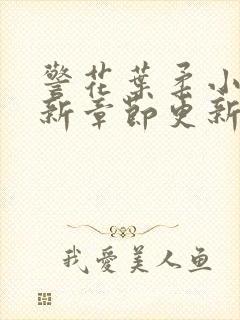 警花葉柔小
新章節更新
我愛美人鱼